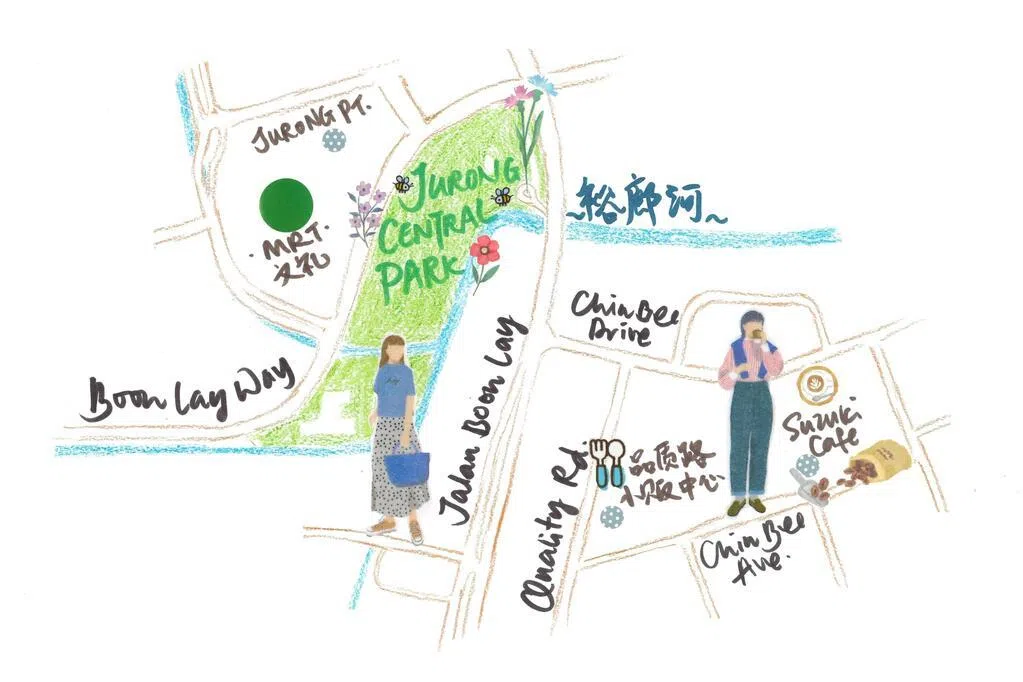 JURONG PT.
MRT.
文礼
JURONG
CENTRAL
PARK
~裕廊河~
Boon Lay Way
Jalan Boon Lay
Chin Bee
Drive
Quality Rd.
品质路
小贩中心
Suzuki
Cafe
Chin Bee
Ave.